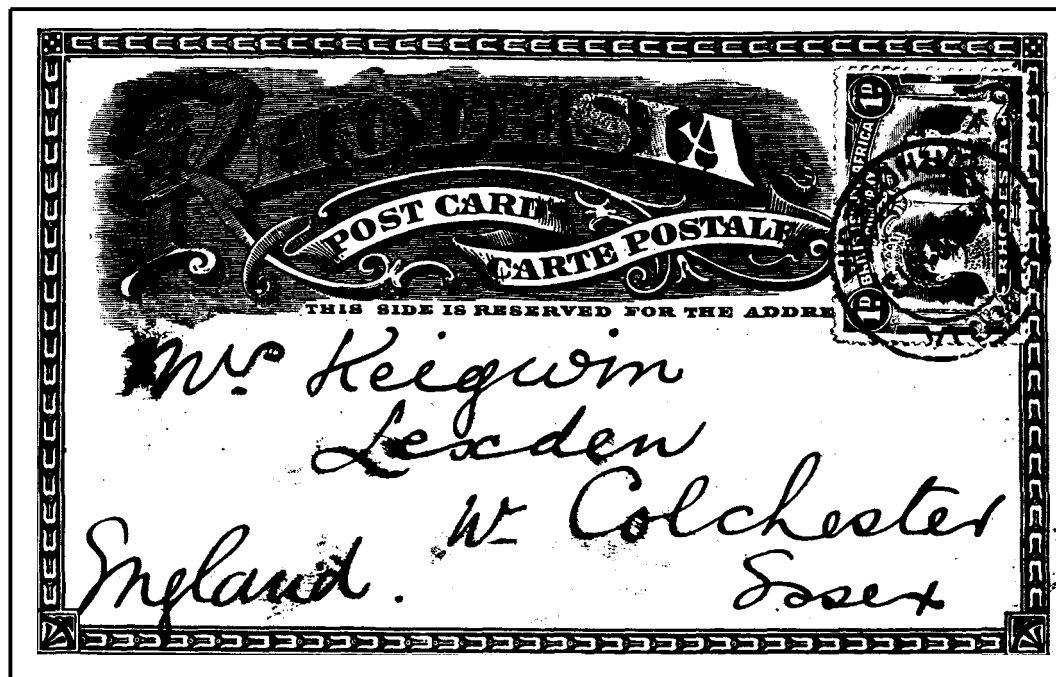 RHODESIA
POST CARD
CARTE POSTALE
THIS SIDE IS RESERVED FOR THE ADDRE
1D
AFRICA
RHODESIA
1D
Mr Keigwin
Lexden
Nr Colchester
Essex
England.